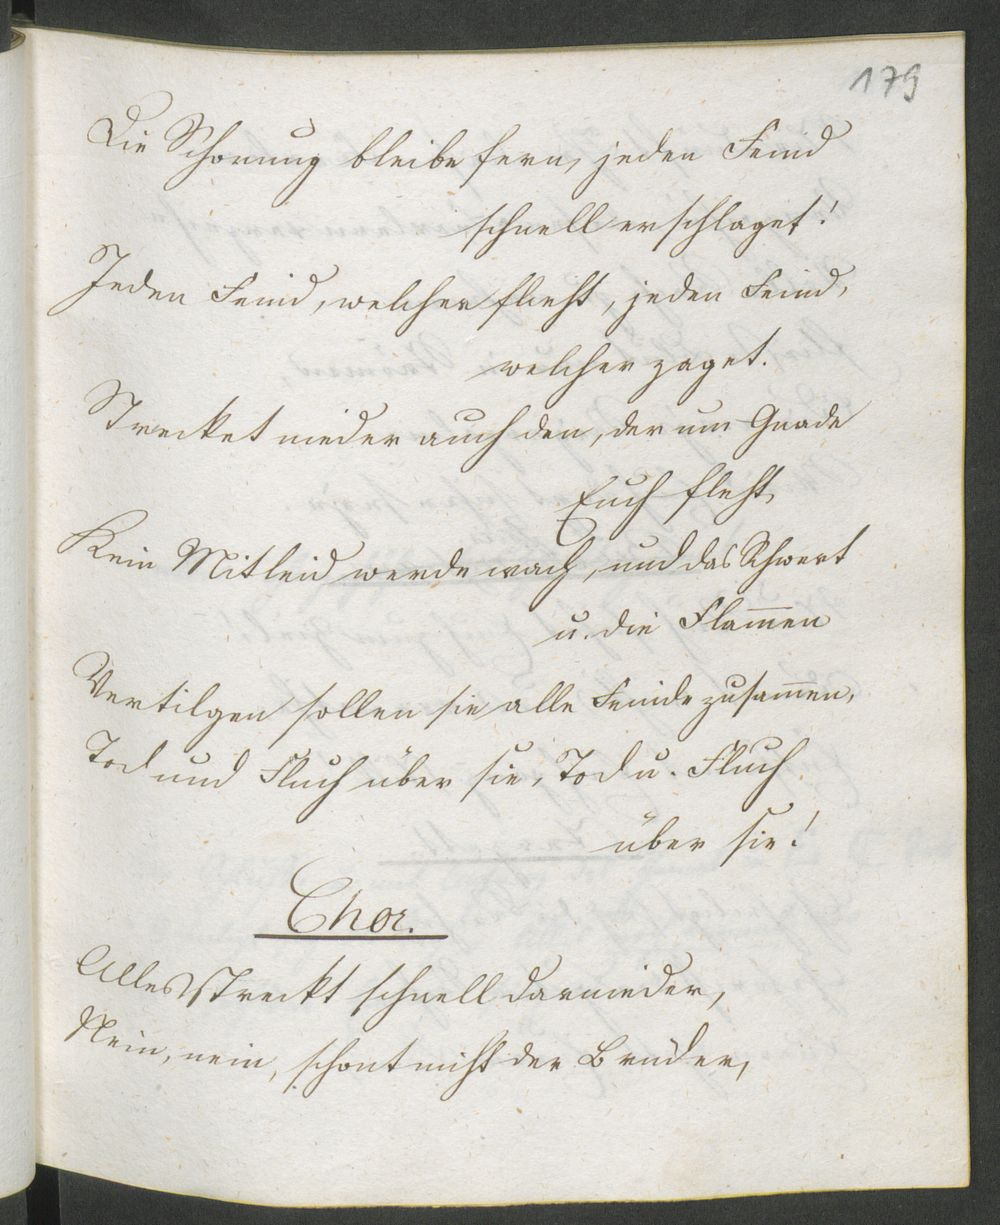 179
Die Schonung bleibe fern, jeden Feind
schnell erschlaget!
Jeden Feind, welcher flieht, jeden Feind,
welcher zaget.
Strecket nieder auch den, der um Gnade
Euch fleht,
Kein Mitleid werde wach, und das Schwert
u. die Flam̅en
Vertilgen sollen sie alle Feinde zusam̅en,
Tod und Fluch über sie, Tod u. Fluch
über sie!
Chor.
Alles streckt schnell darnieder,
Nein, nein, schont nicht der Brüder,